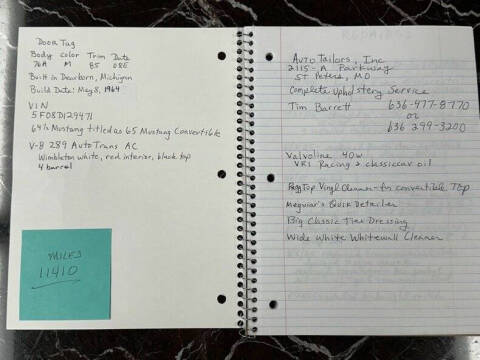 Door Tag
Body Color Trim Date
76A M 85 08E
Built in Dearborn, Michigan
Build Date: May 8, 1964
VIN
5F08D129471
64½ Mustang titled as 65 Mustang Convertible
V-8 289 Auto Trans AC
Wimbleton white, red interior, black top
4 barrel
MILES
11410
REPAIRS
Auto Tailors, Inc
2115-A Parkway
St Peters, MO
Complete Upholstery Service
Tim Barrett 636-477-8770
or
636 299-3200
Valvoline 40w
VR1 Racing + classic car oil
RaggTop Vinyl Cleaner - for convertible Top
Meguiar's Quik Detailer
Big Classic Tire Dressing
Wide White Whitewall Cleaner